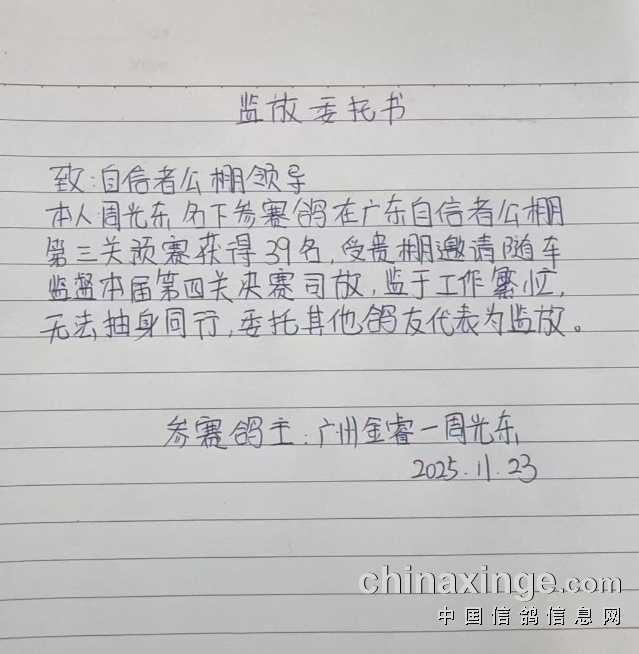 监放委托书
致:自信者公棚领导
本人周光东,名下参赛鸽在广东自信者公棚
第三关预赛获得39名,受贵棚邀请随车
监督本届第四关决赛司放,监于工作繁忙,
无法抽身同行,委托其他鸽友代表为监放。
参赛鸽主:广州金睿一周光东
2025.11.23
chinaxinge.com
中国信鸽信息网